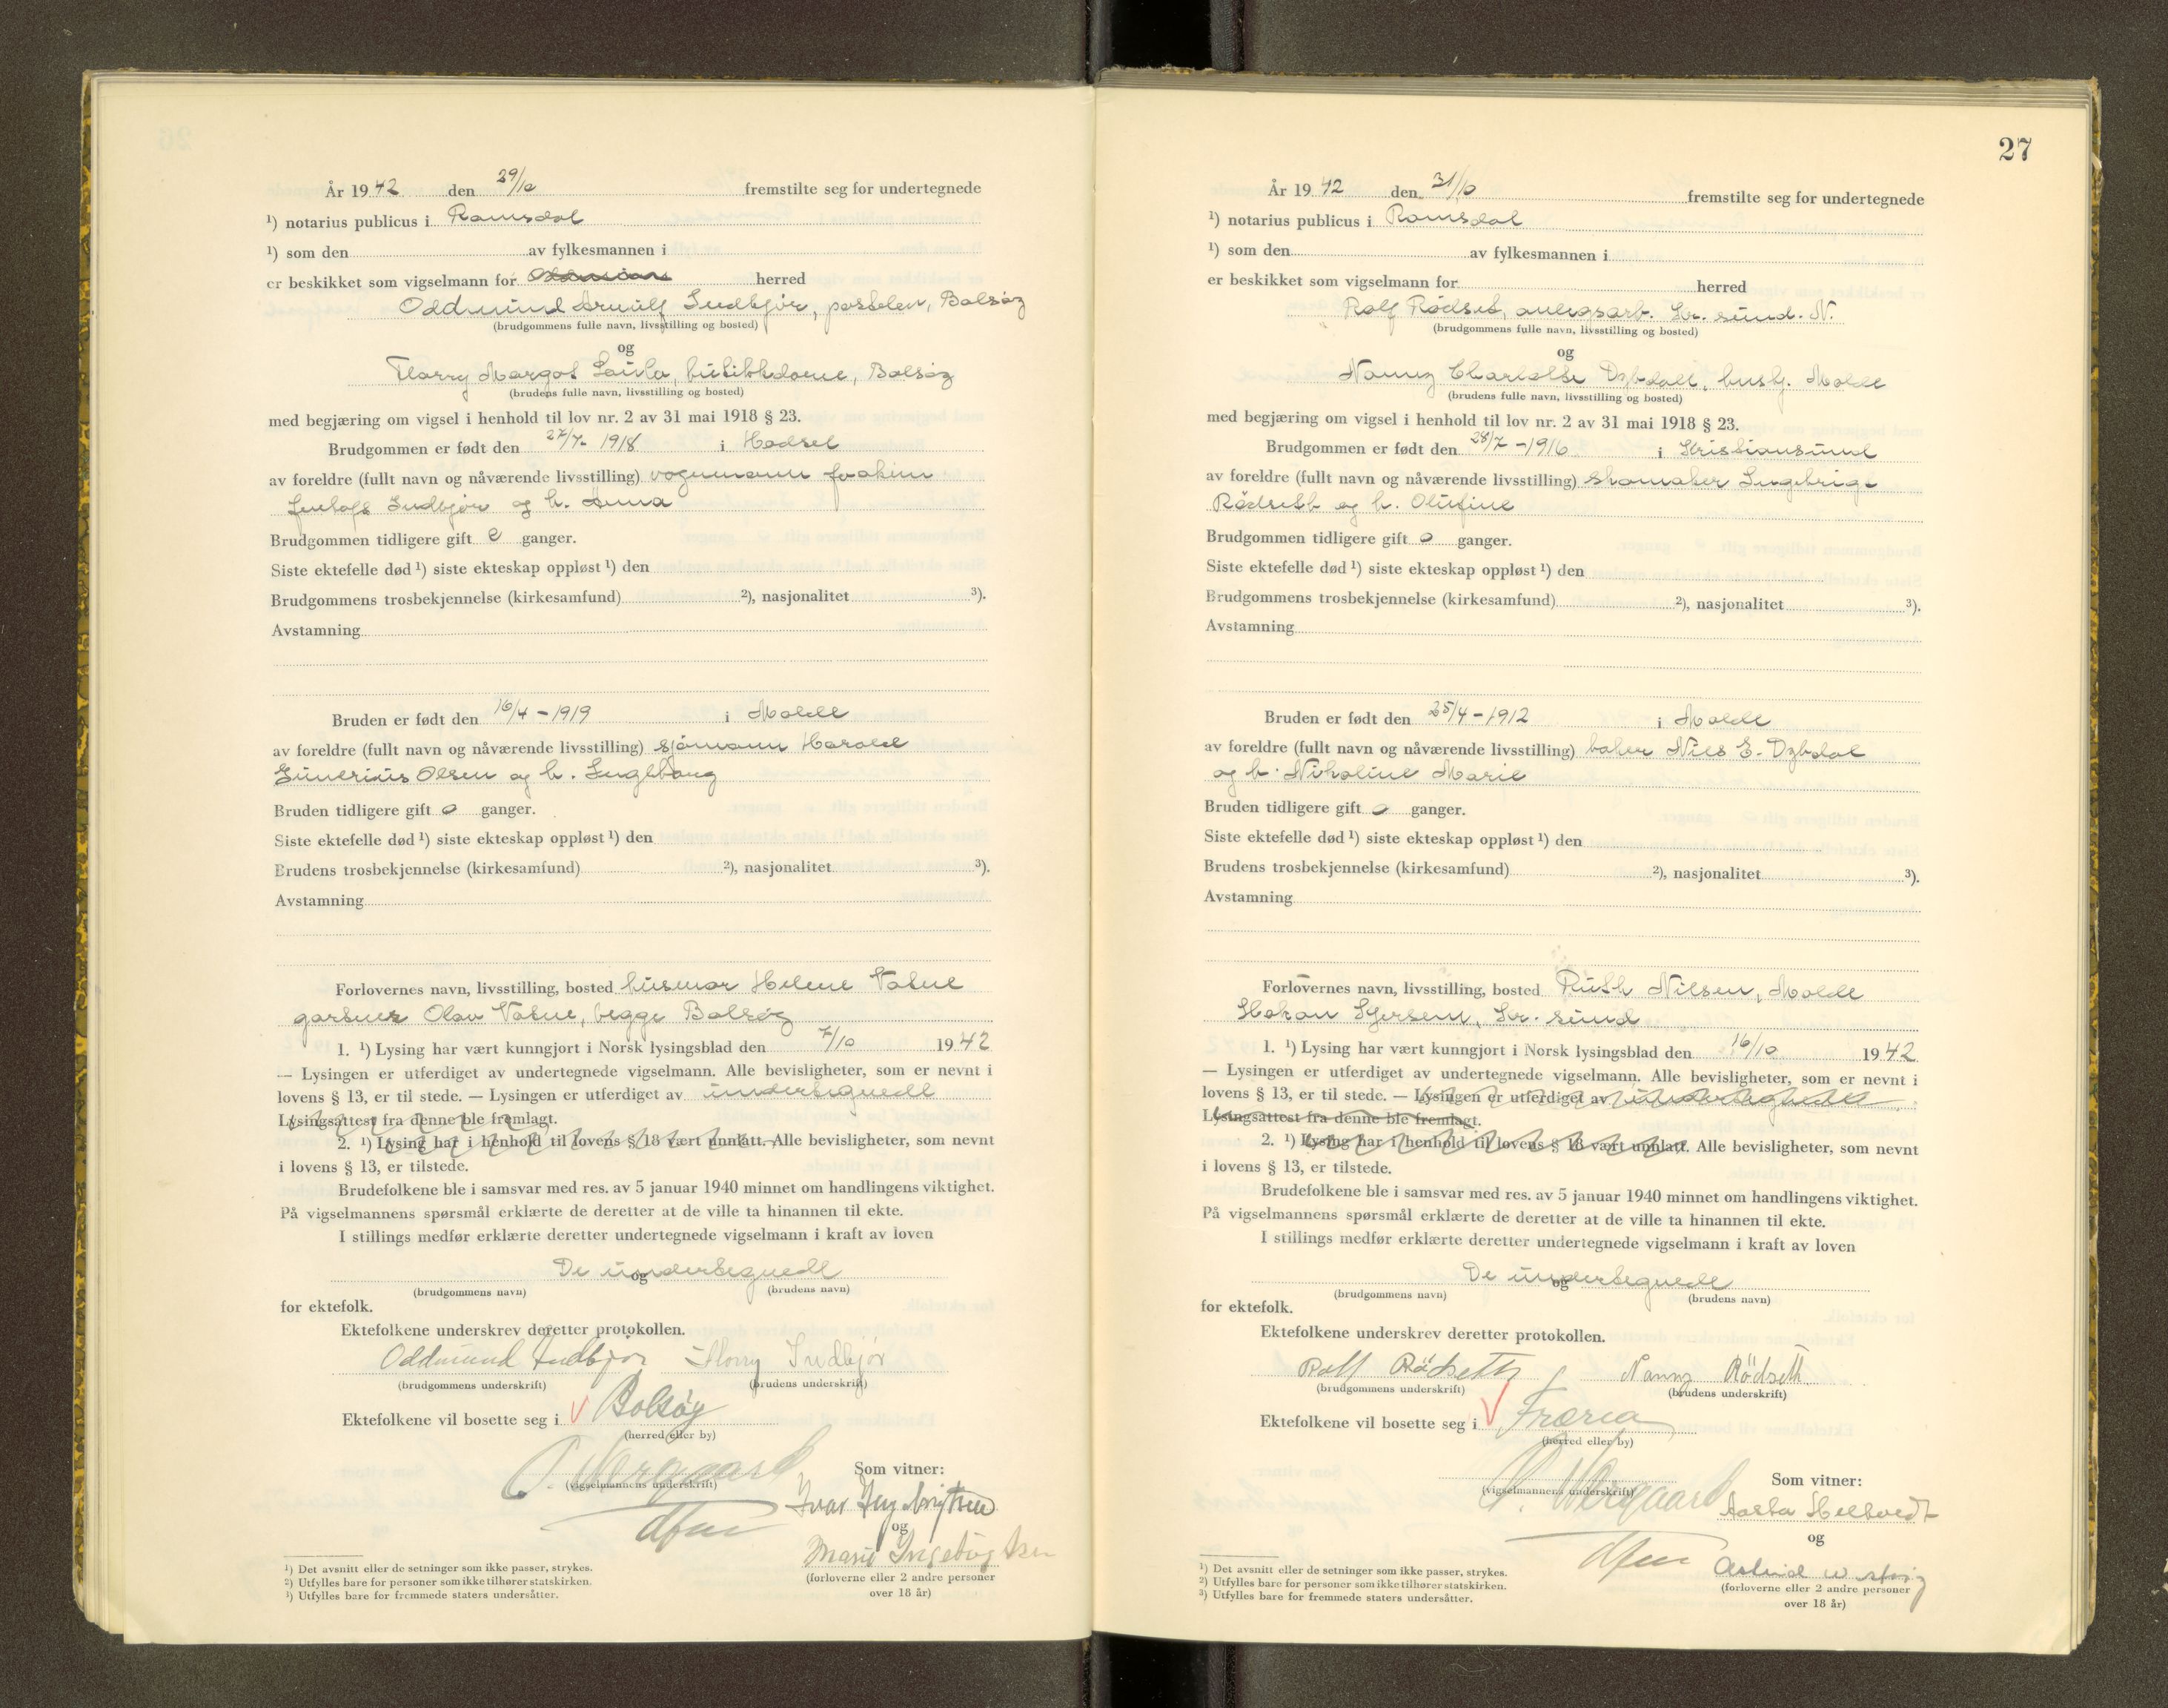 År 1942 den 29/10 fremstilte seg for undertegnede
¹) notarius publicus i Romsdal
¹) som den av fylkesmannen i
er beskikket som vigselmann for herred
Oddmund Arnulf Indbjør, postelev, Bolsøy
(brudgommens fulle navn, livsstilling og bosted)
og
Harry Margot Laula, butikkdame, Bolsøy
(brudens fulle navn, livsstilling og bosted)
med begjæring om vigsel i henhold til lov nr. 2 av 31 mai 1918 § 23.
Brudgommen er født den 27/7- 1918 i Hadsel
av foreldre (fullt navn og nåværende livsstilling) vognmann Joakim
Indbjør og h. Anna
Brudgommen tidligere gift 0 ganger.
Siste ektefelle død ¹) siste ekteskap oppløst ¹) den
Brudgommens trosbekjennelse (kirkesamfund) ²), nasjonalitet ³).
Avstamning
Bruden er født den 16/4 - 1919 i Molde
av foreldre (fullt navn og nåværende livsstilling) sjømann Harald
Gunerius Olsen og h. Ingeborg
Bruden tidligere gift 0 ganger.
Siste ektefelle død ¹) siste ekteskap oppløst ¹) den
Brudens trosbekjennelse (kirkesamfund) ²), nasjonalitet ³).
Avstamning
Forlovernes navn, livsstilling, bosted husmor Helene Vatne
gartner Olav Vatne, begge Bolsøy
1. ¹) Lysing har vært kunngjort i Norsk lysingsblad den 7/10 1942
— Lysingen er utferdiget av undertegnede vigselmann. Alle bevisligheter, som er nevnt i
lovens § 13, er til stede. — Lysingen er utferdiget av undertegnede
Lysingsattest fra denne ble fremlagt.
2. ¹) Lysing har i henhold til lovens § 18 vært unnlatt. Alle bevisligheter, som nevnt
i lovens § 13, er tilstede.
Brudefolkene ble i samsvar med res. av 5 januar 1940 minnet om handlingens viktighet.
På vigselmannens spørsmål erklærte de deretter at de ville ta hinannen til ekte.
I stillings medfør erklærte deretter undertegnede vigselmann i kraft av loven
De undertegnede
og
(brudgommens navn) (brudens navn)
for ektefolk.
Ektefolkene underskrev deretter protokollen.
Oddmund Indbjør Harry Indbjør
(brudgommens underskrift) (brudens underskrift)
Ektefolkene vil bosette seg i Bolsøy
(herred eller by)
Som vitner:
(vigselmannens underskrift)
Ivar Ingebrigtsen
og
Marie Ingebrigtsen
(forloverne eller 2 andre personer
over 18 år)
¹) Det avsnitt eller de setninger som ikke passer, strykes.
²) Utfylles bare for personer som ikke tilhører statskirken.
³) Utfylles bare for fremmede staters undersåtter.
27
År 1942 den 31/10 fremstilte seg for undertegnede
¹) notarius publicus i Romsdal
¹) som den av fylkesmannen i
er beskikket som vigselmann for herred
Rolf Rødseth, anlegsarb. Kr. sund. N.
(brudgommens fulle navn, livsstilling og bosted)
og
Nanny Charlotte Dybdal, husbj. Molde
(brudens fulle navn, livsstilling og bosted)
med begjæring om vigsel i henhold til lov nr. 2 av 31 mai 1918 § 23.
Brudgommen er født den 28/7 - 1916 i Kristiansund
av foreldre (fullt navn og nåværende livsstilling) skomaker Ingebrigt
Rødseth og h. Olufine
Brudgommen tidligere gift 0 ganger.
Siste ektefelle død ¹) siste ekteskap oppløst ¹) den
Brudgommens trosbekjennelse (kirkesamfund) ²), nasjonalitet ³).
Avstamning
Bruden er født den 25/4 - 1912 i Molde
av foreldre (fullt navn og nåværende livsstilling) baker Nils E. Dybdal
og h. Nikoline Marie
Bruden tidligere gift 0 ganger.
Siste ektefelle død ¹) siste ekteskap oppløst ¹) den
Brudens trosbekjennelse (kirkesamfund) ²), nasjonalitet ³).
Avstamning
Forlovernes navn, livsstilling, bosted Ruth Nilsen, Molde
Håkon Iversen, Kr. sund
1. ¹) Lysing har vært kunngjort i Norsk lysingsblad den 16/10 1942
— Lysingen er utferdiget av undertegnede vigselmann. Alle bevisligheter, som er nevnt i
lovens § 13, er til stede. — Lysingen er utferdiget av undertegnede
Lysingsattest fra denne ble fremlagt.
2. ¹) Lysing har i henhold til lovens § 18 vært unnlatt. Alle bevisligheter, som nevnt
i lovens § 13, er tilstede.
Brudefolkene ble i samsvar med res. av 5 januar 1940 minnet om handlingens viktighet.
På vigselmannens spørsmål erklærte de deretter at de ville ta hinannen til ekte.
I stillings medfør erklærte deretter undertegnede vigselmann i kraft av loven
De undertegnede
og
(brudgommens navn) (brudens navn)
for ektefolk.
Ektefolkene underskrev deretter protokollen.
Rolf Rödseth Nanny Rödseth
(brudgommens underskrift) (brudens underskrift)
Ektefolkene vil bosette seg i Fræna
(herred eller by)
Som vitner:
(vigselmannens underskrift)
Aasta
og
Astrid
(forloverne eller 2 andre personer
over 18 år)
¹) Det avsnitt eller de setninger som ikke passer, strykes.
²) Utfylles bare for personer som ikke tilhører statskirken.
³) Utfylles bare for fremmede staters undersåtter.